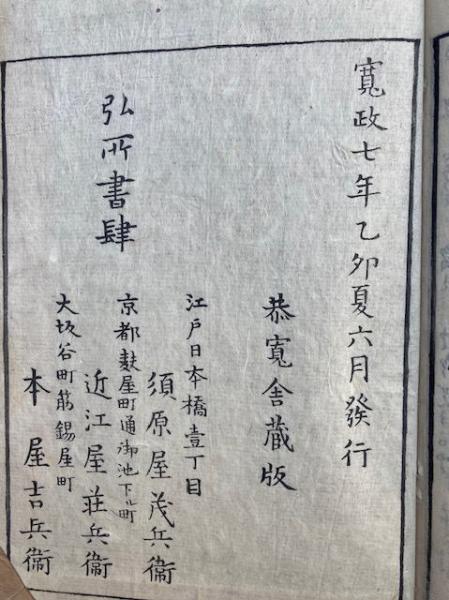 寛政七年乙卯夏六月發行
恭寛舎蔵版
江戸日本橋壹丁目
須原屋茂兵衞
京都麩屋町通御池下ル町
近江屋荘兵衞
大坂谷町筋錫屋町
本屋吉兵衞
弘所書肆